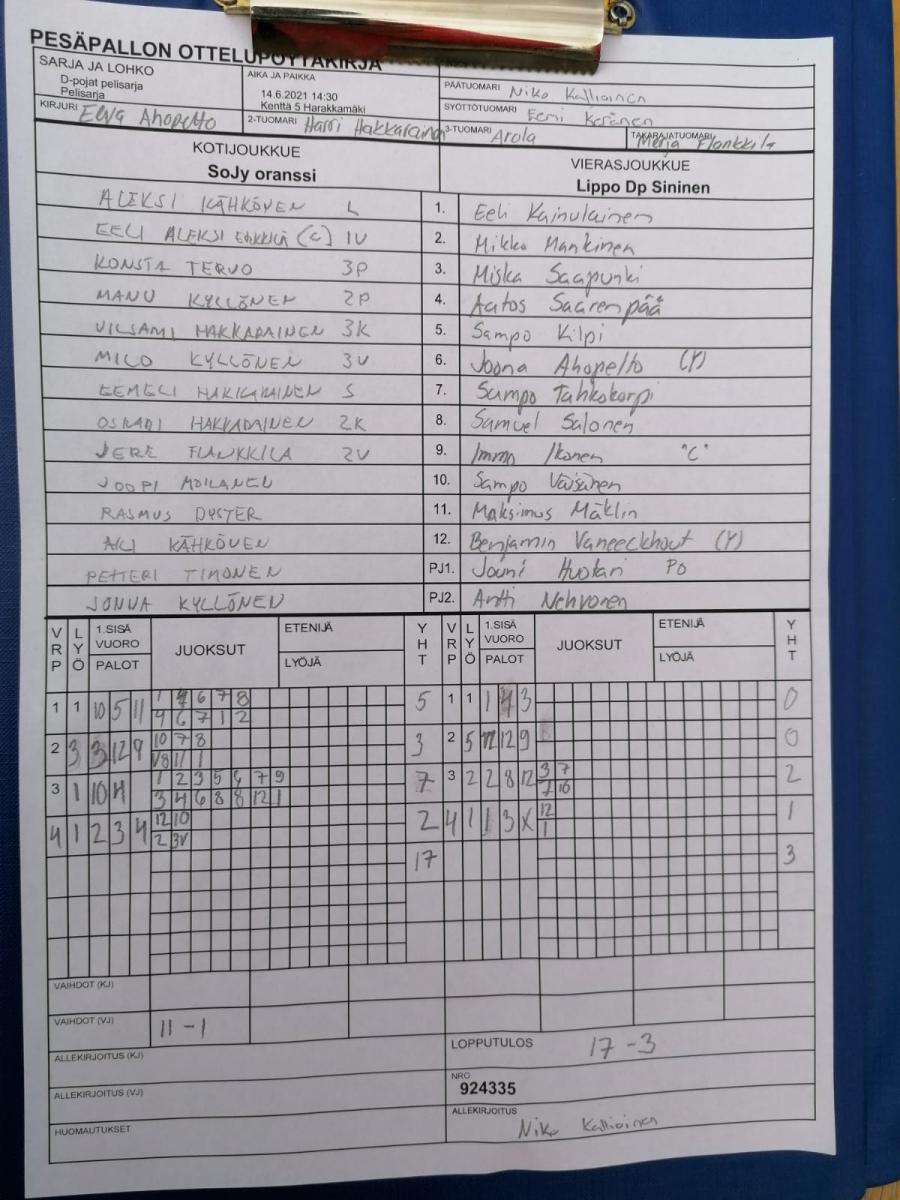 PESÄPALLON OTTELUPÖYTÄKIRJA
SARJA JA LOHKO
D-pojat pelisarja
Pelisarja
AIKA JA PAIKKA
14.6.2021 14:30
Kenttä 5 Harakkamäki
PÄÄTUOMARI Niko Kallioinen
SYÖTTÖTUOMARI Eemi Keränen
KIRJURI Eeva Ahopelto
2-TUOMARI Harri Hakkarainen
3-TUOMARI Arola
TAKARAJATUOMARI Merja Flankkila
KOTIJOUKKUE
SoJy oranssi
VIERASJOUKKUE
Lippo Dp Sininen
ALEKSI KÄHKÖNEN L 1. Eeli Kainulainen
EELI ALEKSI (C) 1V 2. Mikko Mankinen
KONSTA TERVO 3P 3. Miska Saapunki
MANU KYLLÖNEN 2P 4. Aatos Saarenpää
VILJAMI HAKKARAINEN 3K 5. Sampo Kilpi
MILO KYLLÖNEN 3V 6. Joona Ahopelto (Y)
EEMELI HAKKARAINEN S 7. Sampo Tahkokorpi
OSKARI HAKKARAINEN 2K 8. Samuel Salonen
JERE FLANKKILA 2V 9. Immo Ikonen "C"
JOOPI MOILANEN 10. Sampo Väisänen
RASMUS DYSTER 11. Maksimus Mäklin
KÄHKÖNEN 12. Benjamin Vaneeckhout (Y)
PETTERI TIMONEN PJ1. Jouni Huotari PO
JONNA KYLLÖNEN PJ2. Antti Nehvonen
VRP LYÖ 1.SISÄ VUORO PALOT JUOKSUT ETENIJÄ LYÖJÄ YHT VRP LYÖ 1.SISÄ VUORO PALOT JUOKSUT ETENIJÄ LYÖJÄ YHT
1 1 10 5 11 1 4 6 7 8 5 1 1 1 4 3 0
4 6 7 1 2
2 3 3 12 9 10 7 8 3 2 5 12 9 0
11 1
3 1 10 1 2 3 5 6 7 9 7 3 2 2 8 12 3 7 2
3 4 6 8 8 12 1 7 10
4 1 2 3 4 12 10 2 4 1 1 3 X 12 1
2 3V 1
17 3
VAIHDOT (KJ)
VAIHDOT (VJ) 11 - 1
ALLEKIRJOITUS (KJ)
LOPPUTULOS 17 - 3
ALLEKIRJOITUS (VJ)
NRO
924335
HUOMAUTUKSET
ALLEKIRJOITUS
Niko Kallioinen